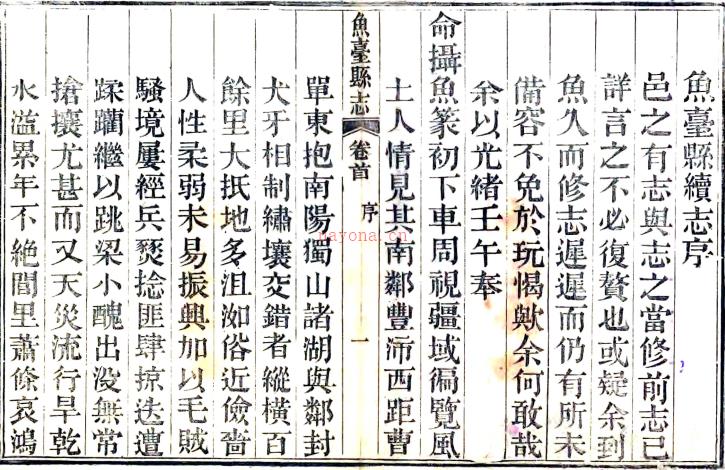 魚臺縣續志序
邑之有志與志之當修前志已
詳言之不必復贅也或疑余到
魚久而修志遲遲而仍有所未
備容不免於玩愒歟余何敢哉
余以光緒壬午奉
命攝魚篆初下車周視疆域徧覽風
土人情見其南鄰豐沛西距曹
魚臺縣志 卷首 序 一
單東抱南陽獨山諸湖與鄰封
犬牙相制繡壤交錯者縱橫百
餘里大抵地多沮洳俗近儉嗇
人性柔弱未易振興加以毛賊
騷境屢經兵燹捻匪肆掠迭遭
蹂躪繼以跳梁小醜出没無常
搶攘尤甚而又天災流行旱乾
水溢累年不絶閭里蕭條哀鴻
nayona.cn